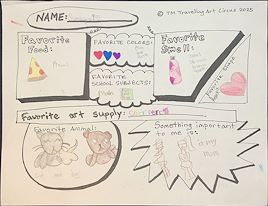 NAME:
© TM Travelling Art Circus 2025
Favorite
Food:
FAVORITE COLORS:
Favorite
Smell:
FAVORITE
SCHOOL SUBJECTS:
Math
Favorite art supply:
Favorite Animal:
Something important
to me is:
my mom